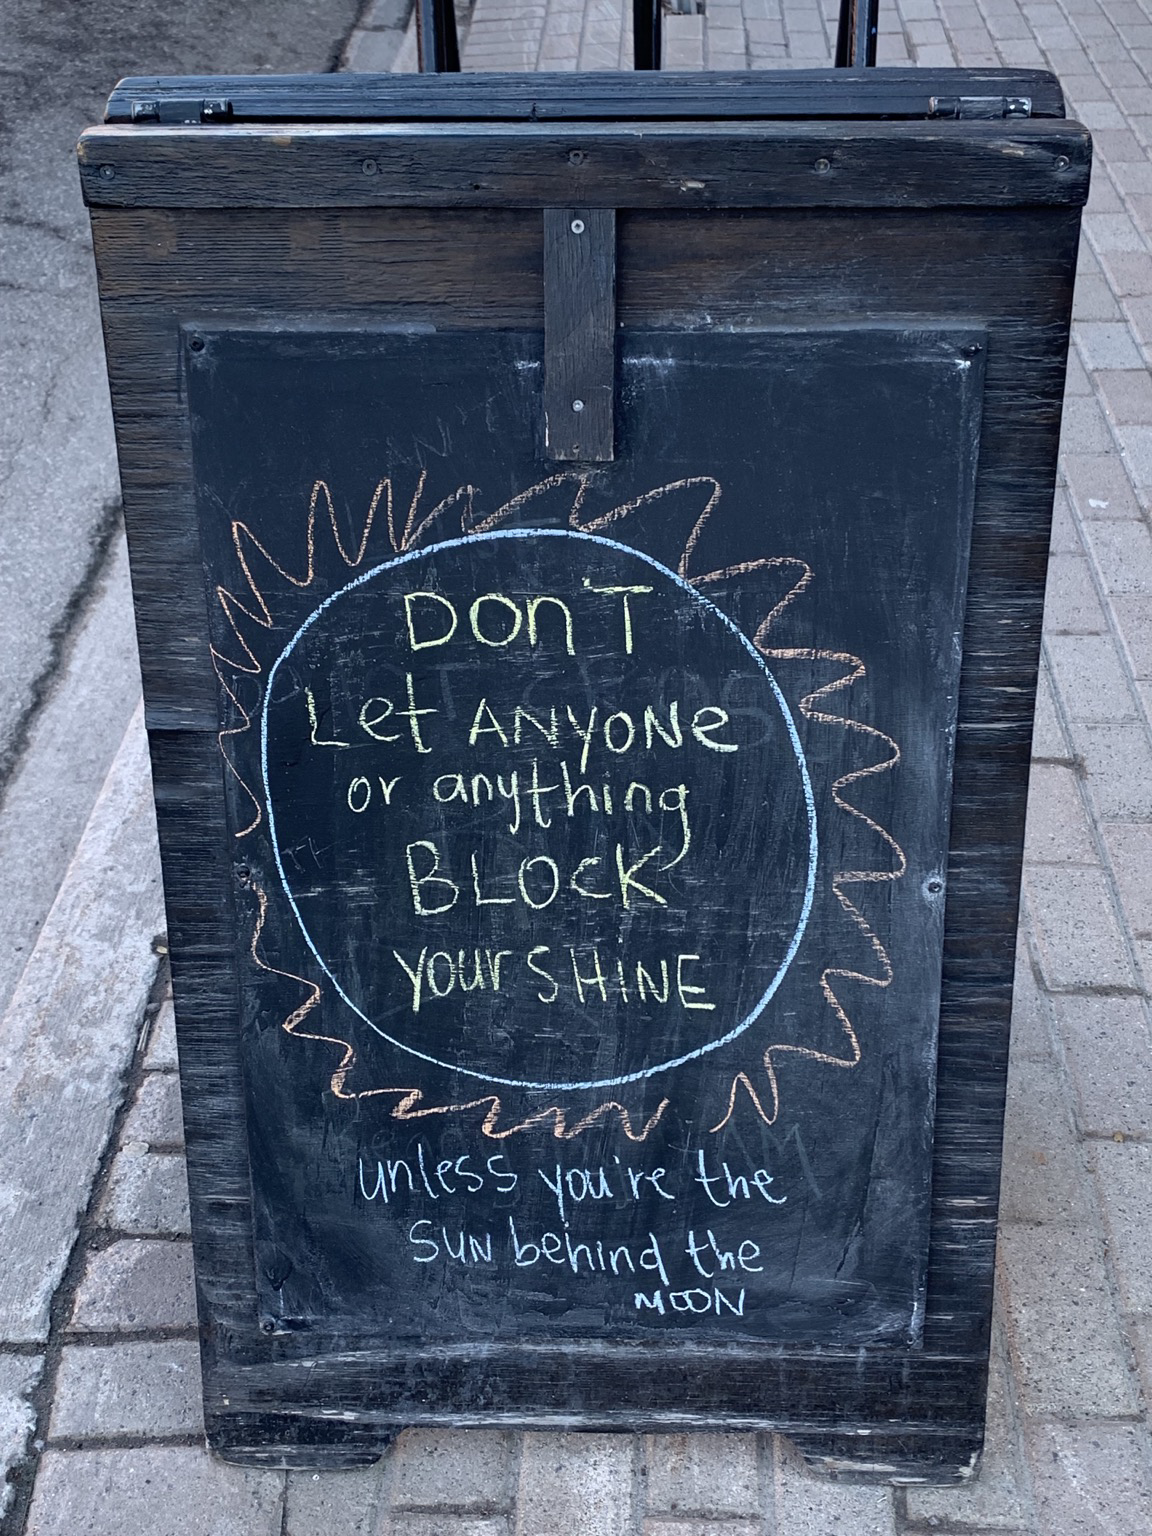 DON'T
Let ANYONe
or anything
BLOCK
your SHINE
unless you're the
SUN behind the
MOON